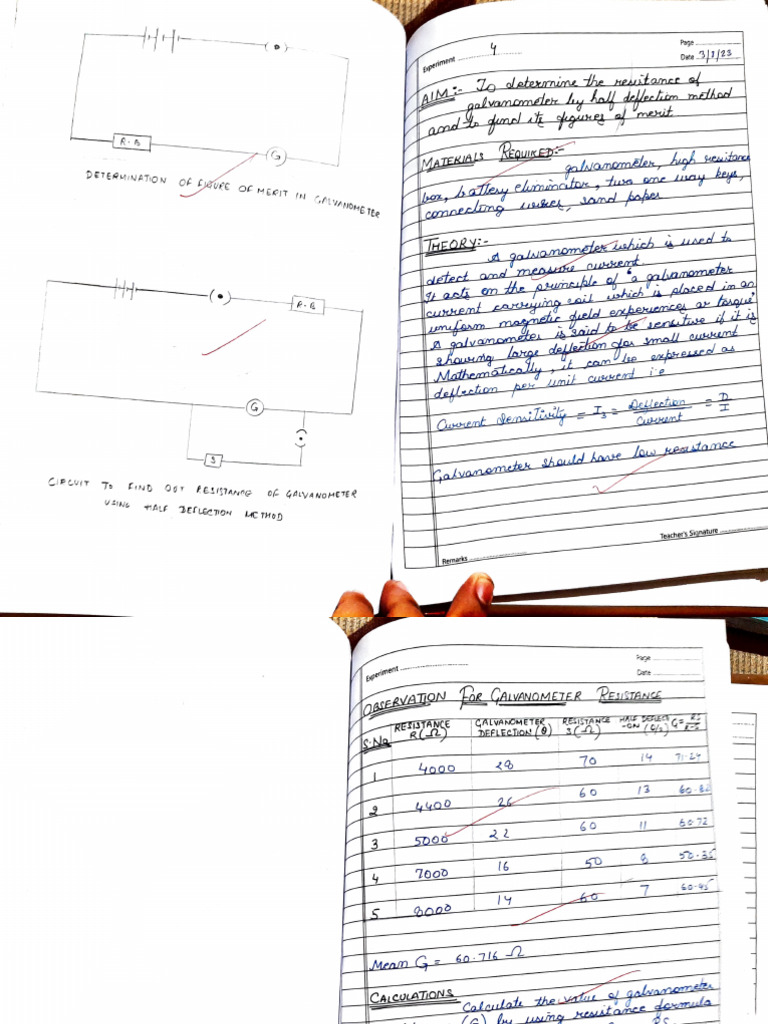 R.B
G
DETERMINATION OF FIGURE OF MERIT IN GALVANOMETER
R.B
G
S
CIRCUIT TO FIND OUT RESISTANCE OF GALVANOMETER
USING HALF DEFLECTION METHOD
Experiment 4
Page
Date 3/1/23
AIM:- To determine the resistance of
galvanometer by half deflection method
and to find its figures of merit
MATERIALS REQUIRED:-
galvanometer, high resistance
box, battery eliminator, two one way keys,
connecting wires, sand paper
THEORY:-
A galvanometer which is used to
detect and measure current.
It acts on the principle of "a galvanometer
current carrying coil which is placed in an
uniform magnetic field experiences a torque"
A galvanometer is said to be sensitive if it is
showing large deflection for small current
Mathematically, it can be expressed as
deflection per unit current i.e
Current Sensitivity = Is = Deflection/Current = D/I
Galvanometer should have low resistance
Teacher's Signature
Remarks
Experiment
Page
Date
OBSERVATION FOR GALVANOMETER RESISTANCE
S.No RESISTANCE R(Ω) GALVANOMETER DEFLECTION (θ) RESISTANCE S(Ω) HALF DEFLECT-ION (θ/2) G = RS/R-S
1 4000 28 70 14 71.24
2 4400 26 60 13 60.82
3 5000 22 60 11 60.72
4 7000 16 50 8 50.35
5. 8000 14 60 7 60.45
Mean G = 60.716 Ω
CALCULATIONS
Calculate the value of galvanometer
(G) by using resistance formula
RS